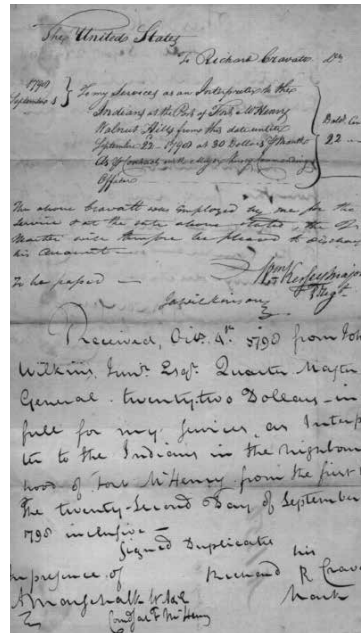 The United States
To Richard Cravat Dr.
1798
September 1 } To my Services as an Interpreter to the
Indians at the Post of Fort McHenry
Walnut Hills from this date until
September 22 - 1798 at 30 Dollars Month
As Contract with Major Kersey commanding
Officer
22
The above Cravath was employed by me for the
Service & at the rate above stated, the Q
Master will therefore be pleased to discharge
his account
Wm Kersey Major
Regt.
To be passed
Ja Wilkinson
Received, Octr. 4th 1798 from John
Wilkins, Junr. Esqr. Quarter Master
General twenty two Dollars in
full for my Services, as Interp
ter to the Indians in the neighbour
hood of Fort McHenry from the first
The twenty Second Day of September
1798 inclusive
Signed Duplicate
In presence of
his
Richard R Crava
Mark
Marschalk
Fort McHenry